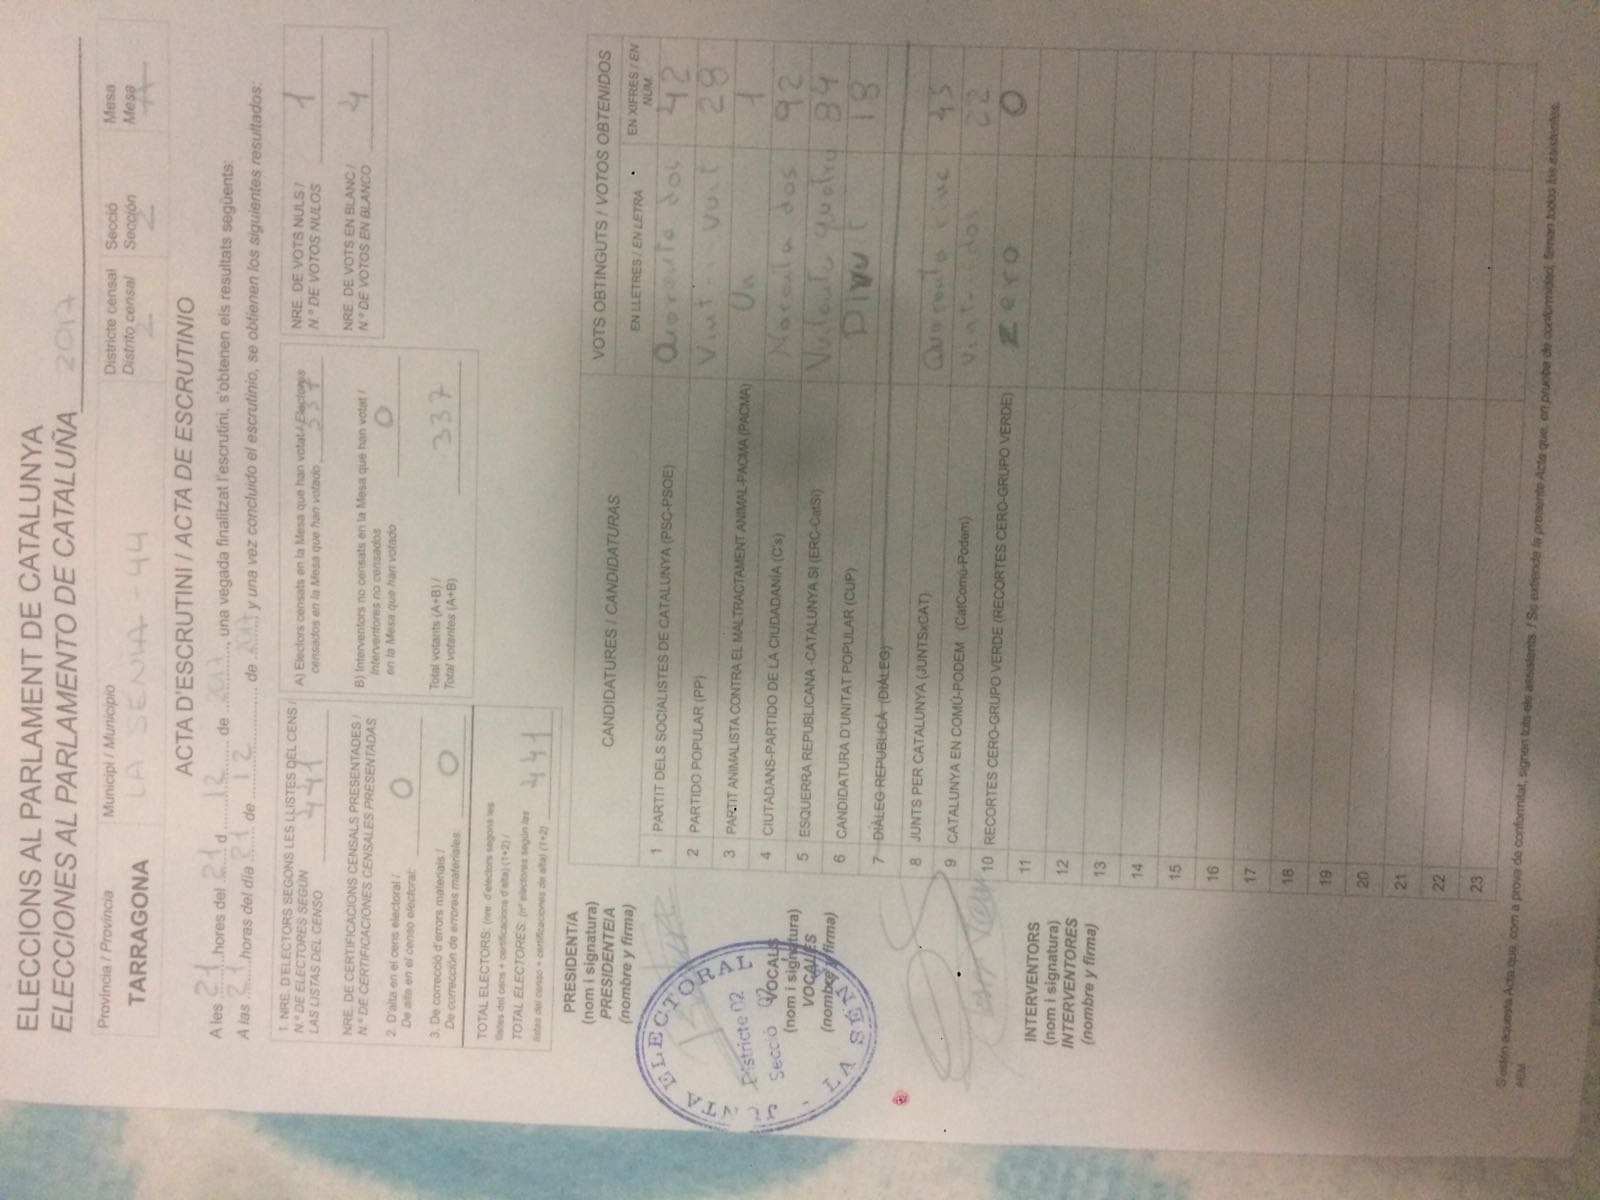 ELECCIONS AL PARLAMENT DE CATALUNYA
ELECCIONES AL PARLAMENTO DE CATALUÑA 2017
Provincia / Provincia
TARRAGONA
Municipi / Municipio
LA SENIA - 44
Districte censal
Distrito censal
2
Secció
Sección
2
Mesa
Mesa
A
ACTA D'ESCRUTINI / ACTA DE ESCRUTINIO
A les 21 hores del 21 d 12 de 2017, una vegada finalitzat l'escrutini, s'obtenen els resultats següents:
A las 21 horas del día 21 de 12 de 2017 y una vez concluido el escrutinio, se obtienen los siguientes resultados:
1. NRE. D'ELECTORS SEGONS LES LLISTES DEL CENS /
N.º DE ELECTORES SEGÚN
LAS LISTAS DEL CENSO 441
NRE. DE CERTIFICACIONS CENSALS PRESENTADES /
N.º DE CERTIFICACIONES CENSALES PRESENTADAS
2. D'alta en el cens electoral /
De alta en el censo electoral: 0
3. De correcció d'errors materials /
De corrección de errores materiales: 0
TOTAL ELECTORS: (nre. d'electors segons les
llistes del cens + certificacions d'alta) (1+2) /
TOTAL ELECTORES: (nº electores según las
listas del censo + certificaciones de alta) (1+2) 441
A) Electors censats en la Mesa que han votat / Electores
censados en la Mesa que han votado 337
B) Interventors no censats en la Mesa que han votat /
Interventores no censados
en la Mesa que han votado 0
Total votants (A+B) /
Total votantes (A+B) 337
NRE. DE VOTS NULS /
N.º DE VOTOS NULOS 1
NRE. DE VOTS EN BLANC /
N.º DE VOTOS EN BLANCO 4
PRESIDENT/A
(nom i signatura)
PRESIDENTE/A
(nombre y firma)
JUNTA ELECTORAL
Districte 02
Secció 02
- LA SÉNIA -
VOCALS
(nom i signatura)
VOCALES
(nombre y firma)
INTERVENTORS
(nom i signatura)
INTERVENTORES
(nombre y firma)
CANDIDATURES / CANDIDATURAS
VOTS OBTINGUTS / VOTOS OBTENIDOS
EN LLETRES / EN LETRA
EN XIFRES / EN NUM.
1 PARTIT DELS SOCIALISTES DE CATALUNYA (PSC-PSOE) Quaranta dos 42
2 PARTIDO POPULAR (PP) Vint-i-vuit 28
3 PARTIT ANIMALISTA CONTRA EL MALTRACTAMENT ANIMAL-PACMA (PACMA) Un 1
4 CIUTADANS-PARTIDO DE LA CIUDADANÍA (C's) Noranta dos 92
5 ESQUERRA REPUBLICANA -CATALUNYA SI (ERC-CatSí) Vuitanta quatre 84
6 CANDIDATURA D'UNITAT POPULAR (CUP) Divuit 18
7 DIÀLEG REPUBLICÀ (DIÀLEG)
8 JUNTS PER CATALUNYA (JUNTSxCAT) Quaranta cinc 45
9 CATALUNYA EN COMÚ-PODEM (CatComú-Podem) Vint-i-dos 22
10 RECORTES CERO-GRUPO VERDE (RECORTES CERO-GRUPO VERDE) Zero 0
11
12
13
14
15
16
17
18
19
20
21
22
23
S'estén aquesta Acta que, com a prova de conformitat, signen tots els assistents. / Se extiende la presente Acta que, en prueba de conformidad, firman todos los asistentes.